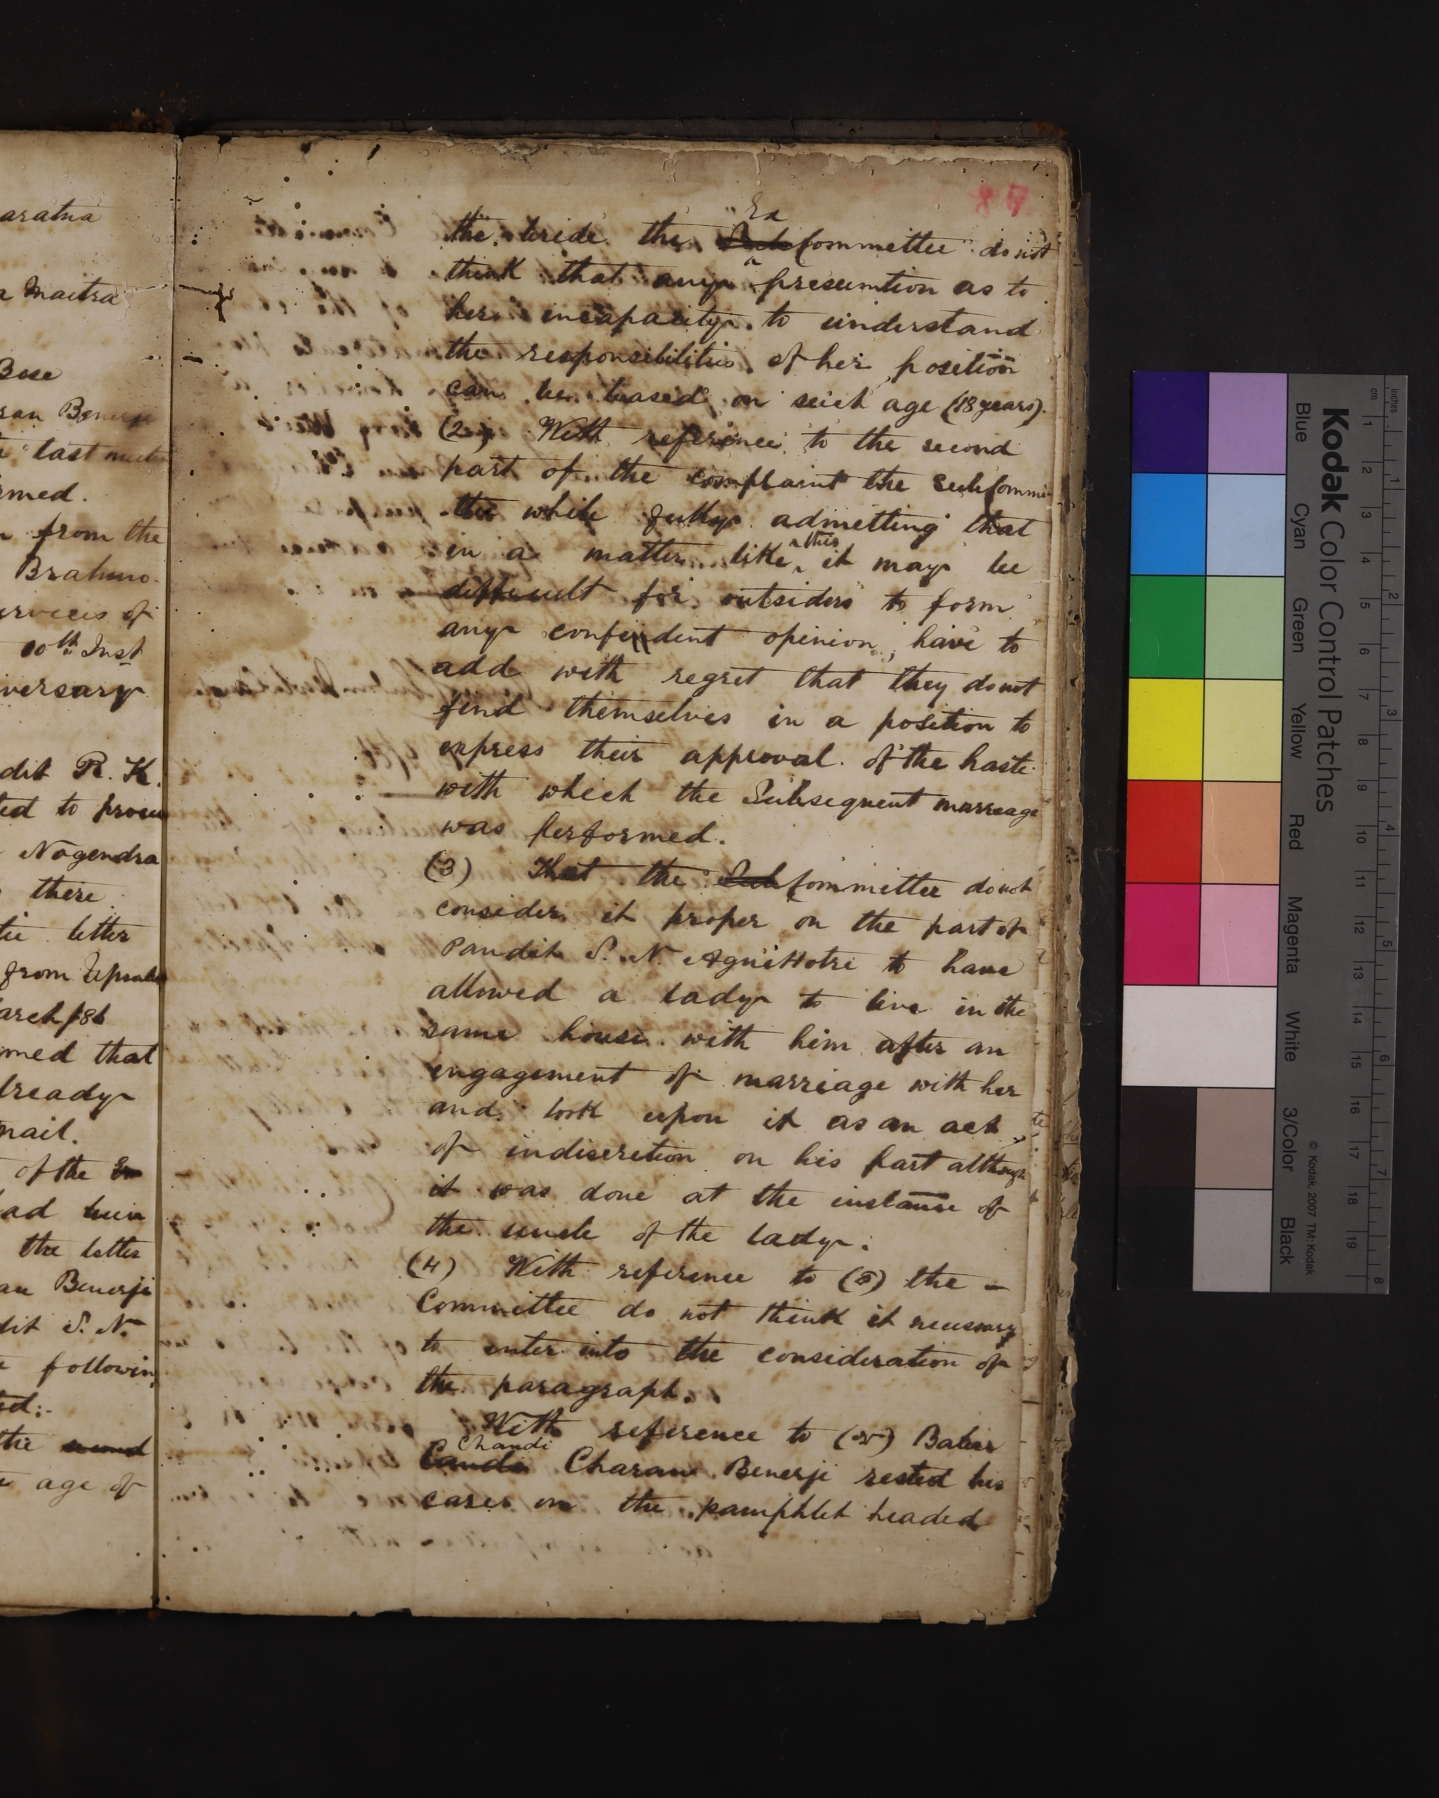 aratna
a Maitra
Bose
ran Benerji
last meetin
rmed.
from the
Brahmo
ervices of
10th Inst
iversary
dit R. K.
ted to procu
Nogendra
there
letter
from Upsala
arch /86
med that
lready
mail.
of the Ex
ad been
the letter
an Benerji
dit S. N.
followin
ed:-
the second
age of
87
the bride the Sub Ex Committee do not
think that any presumtion as to
her incapacity to understand
the responsibilities of her position
can be based on such age (18 years).
(2) With reference to the second
part of the complaint the Subcommi
ttee while fully admitting that
in a matter like this it may be
difficult for outsiders to form
any confindent opinion, have to
add with regret that they do not
find themselves in a position to
express their approval of the haste
with which the Subsequent marreage
was performed.
(3) That the Sub Committee do not
consider it proper on the part of
Pandit S. N. Agnihotri to have
allowed a lady to live in the
same house with him after an
engagement of marriage with her
and look upon it as an act
of indiscretion on his part although
it was done at the instance of
the uncle of the lady.
(4) With reference to (3) the
Committee do not think it necessary
to enter into the consideration of
the paragraph.
With reference to Babu
Cando Chandi Charan Benerji rested his
cases on the pamphlet headed
Kodak Color Control Patches
Blue Cyan Green Yellow Red Magenta White 3/Color Black
© Kodak, 2007 TM: Kodak
inches 1 2 3 4 5 6 7 8
cm 1 2 3 4 5 6 7 8 9 10 11 12 13 14 15 16 17 18 19